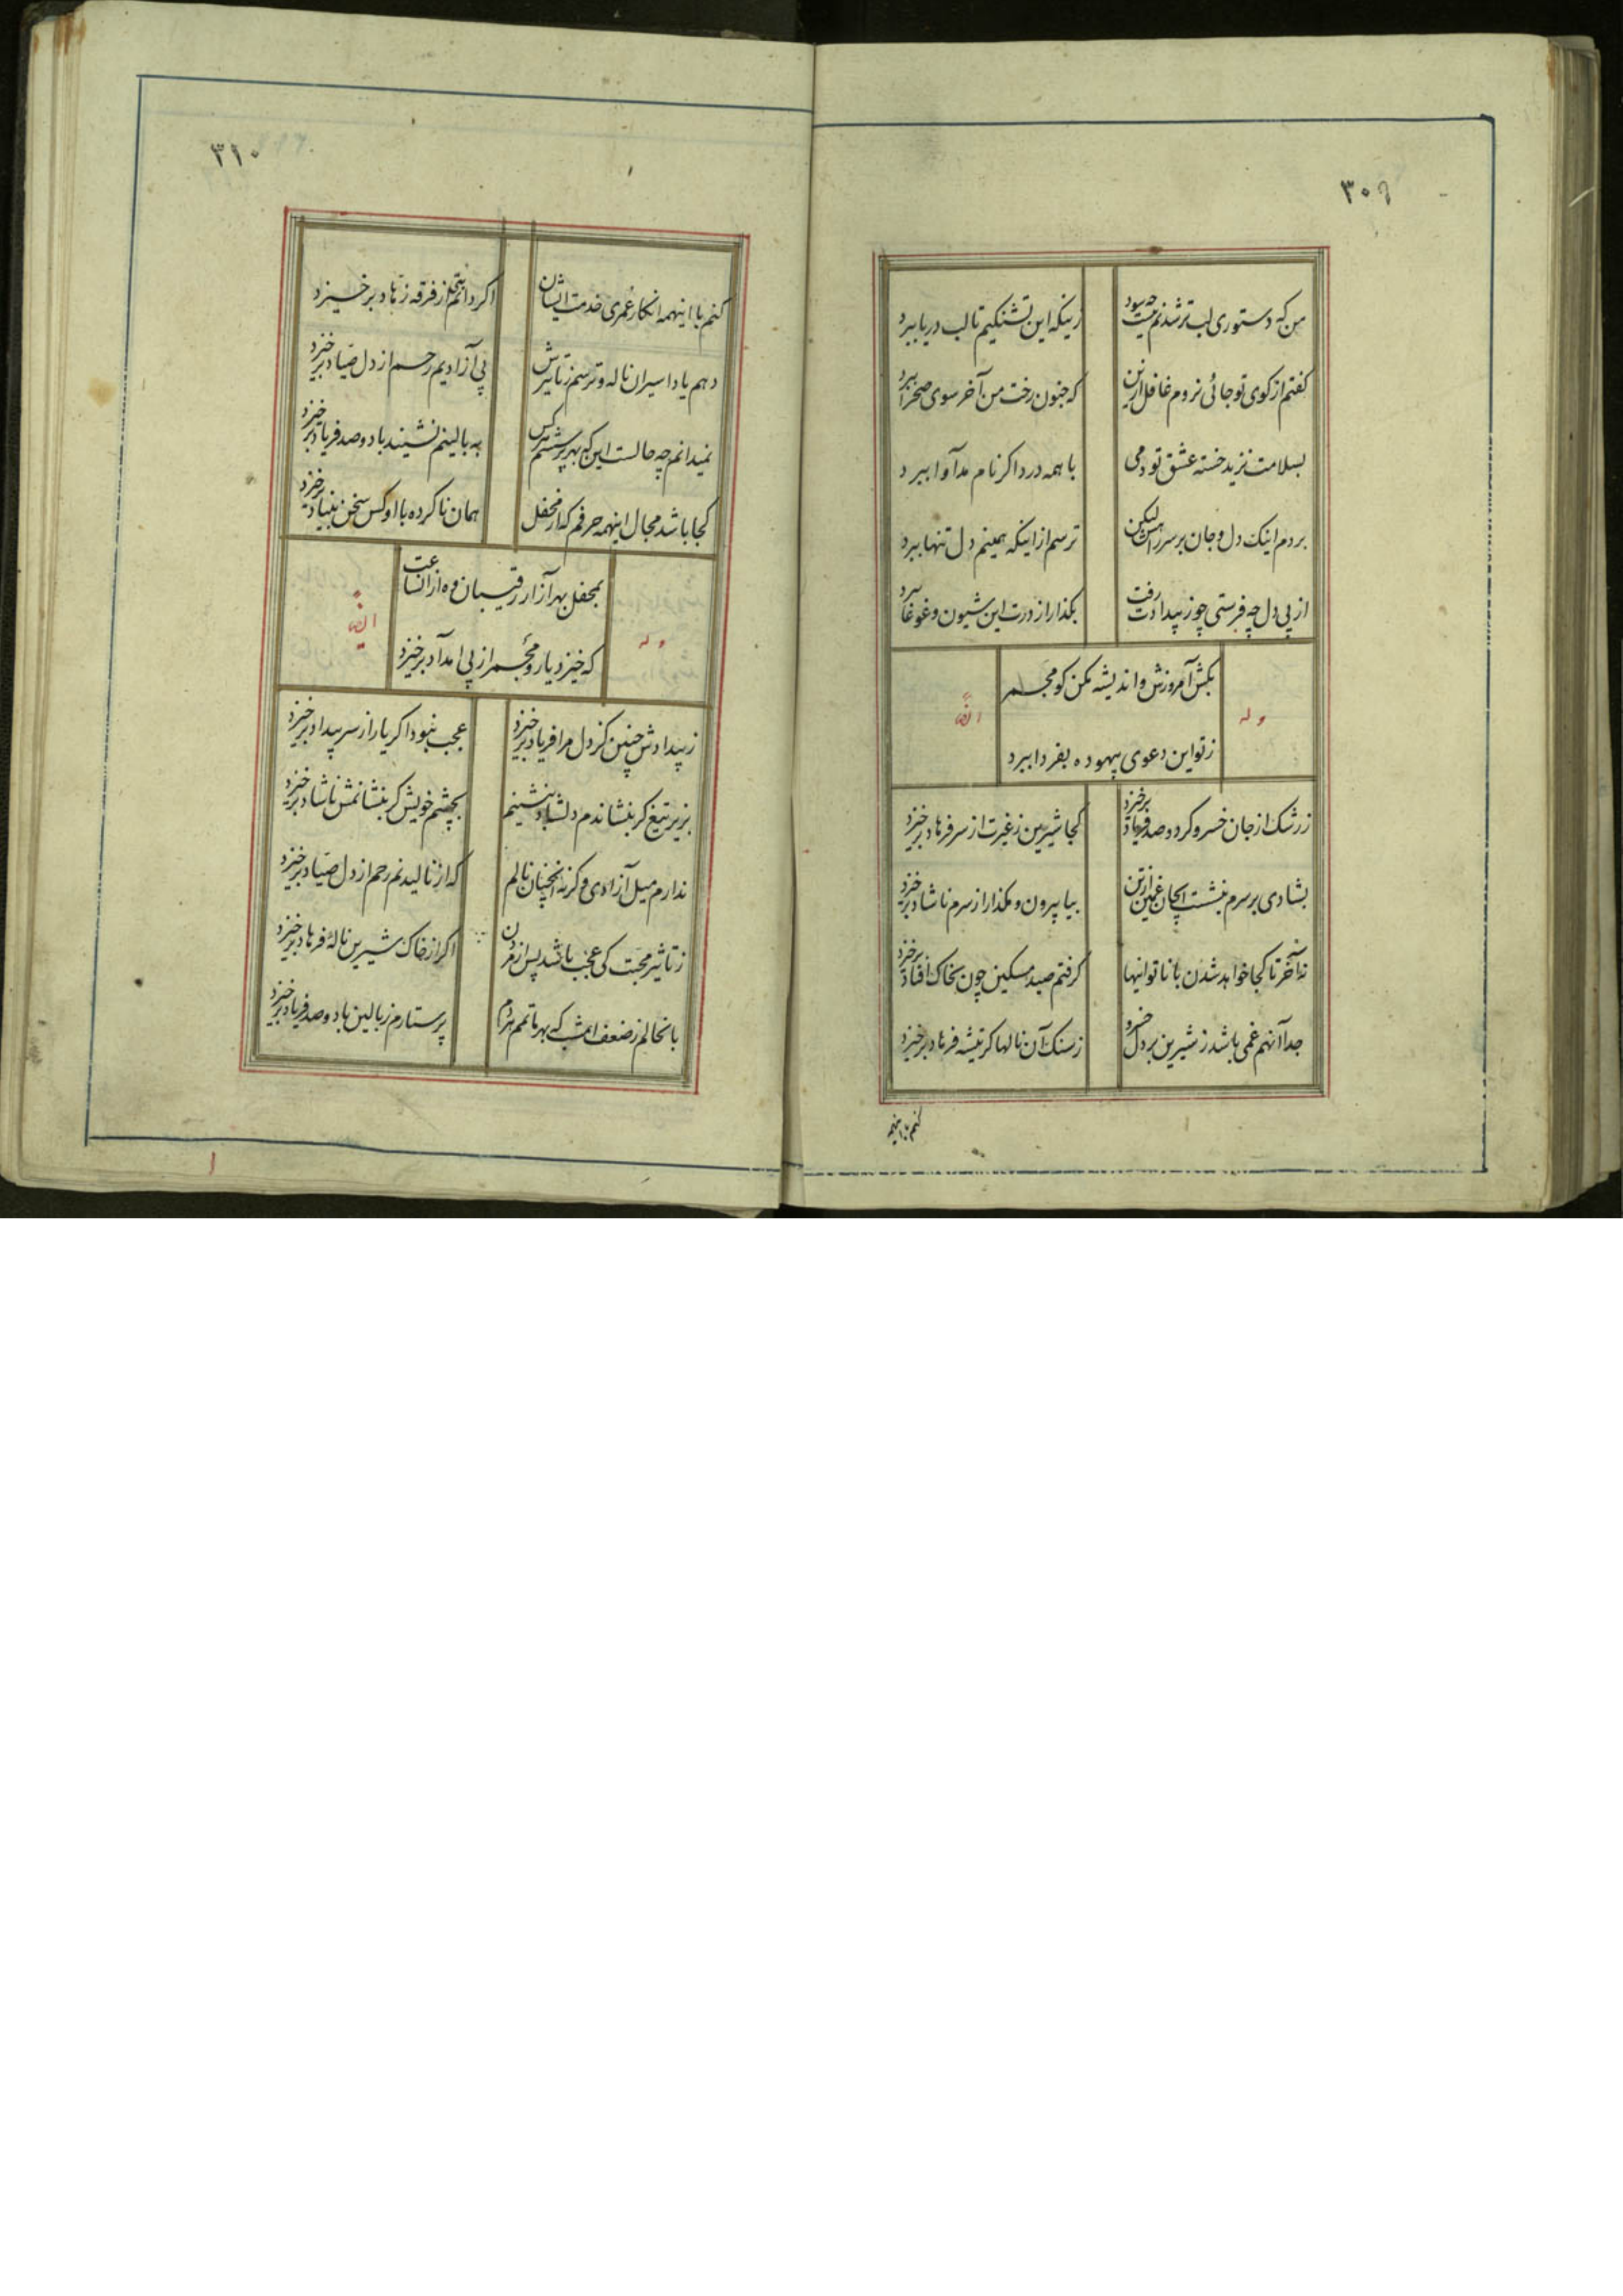 ۳۰۹
من که دستوری لب تر شدنم نیست چه سود
زینکه این تشنکیم تا لب دریا ببرد
کفتم از کوی تو جائی نروم غافل ازین
که جنون رخت من آخر سوی صحرا ببرد
بسلامت نزید خسته عشق تو دمی
با همه درد اکر نام مداوا ببرد
بردم اینک دل و جان بر سر راهش لیکن
ترسم از اینکه همینم دل تنها ببرد
از پی دل چه فرستی چو ز بیدادت رفت
بکذار از درت این شیون و غوغا ببرد
وله
بکش امروزش و اندیشه مکن کو مجمر
ز تو این دعوی بیهوده بفردا ببرد
ایضاً
ز رشک از جان خسرو کر دو صد فریاد برخیزد
کجا شیرین ز غیرت از سر فرهاد برخیزد
بشادی بر سرم بنشست ایجان غمین از تن
بیا بیرون و مکذار از سرم ناشاد برخیزد
نه آخر تا کجا خواهد شدن با ناتوانیها
کرفتم صید مسکین چون بخاک افتاد برخیزد
جدا آنهم غمی باشد ز شیرین بر دل خسرو
ز سنک آن نالها کز تیشه فرهاد برخیزد
کنم با اینهمه
۳۱۰
کنم با اینهمه انکار عمری خدمت ایشان
اکر دانم از فرقه زهاد برخیزد
دهم یاد اسیران ناله و ترسم ز تاثیرش
پی آزادیم رحم از دل صیاد برخیزد
نمیدانم چه حالست این که بهر پرسشم هر کس
به بالینم نشیند با دو صد فریاد برخیزد
کجا باشد مجال اینهمه حرفم که از محفل
همان ناکرده با او کس سخن بنیاد برخیزد
وله
بمحفل بهر آزار رقیبان وه از آنساعت
که خیزد یار و مجمر از پی امداد برخیزد
ایضاً
ز بیدادش چنین کز دل مرا فریاد برخیزد
عجب نبود اکر یار از سر بیداد برخیزد
بزیر تیغ کر بنشاندم دلشاد بنشینم
بچشم خویش کر بنشانمش ناشاد برخیزد
ندارم میل آزادی و کرنه آنچنان نالم
که از نالیدنم رحم از دل صیاد برخیزد
ز تاثیر محبت کی عجب باشد پس از مردن
اکر از خاک شیرین نالهٔ فرهاد برخیزد
بانحالم ز ضعف امشب که بهر ماتمم هر دم
پرستارم ز بالین با دو صد فریاد برخیزد